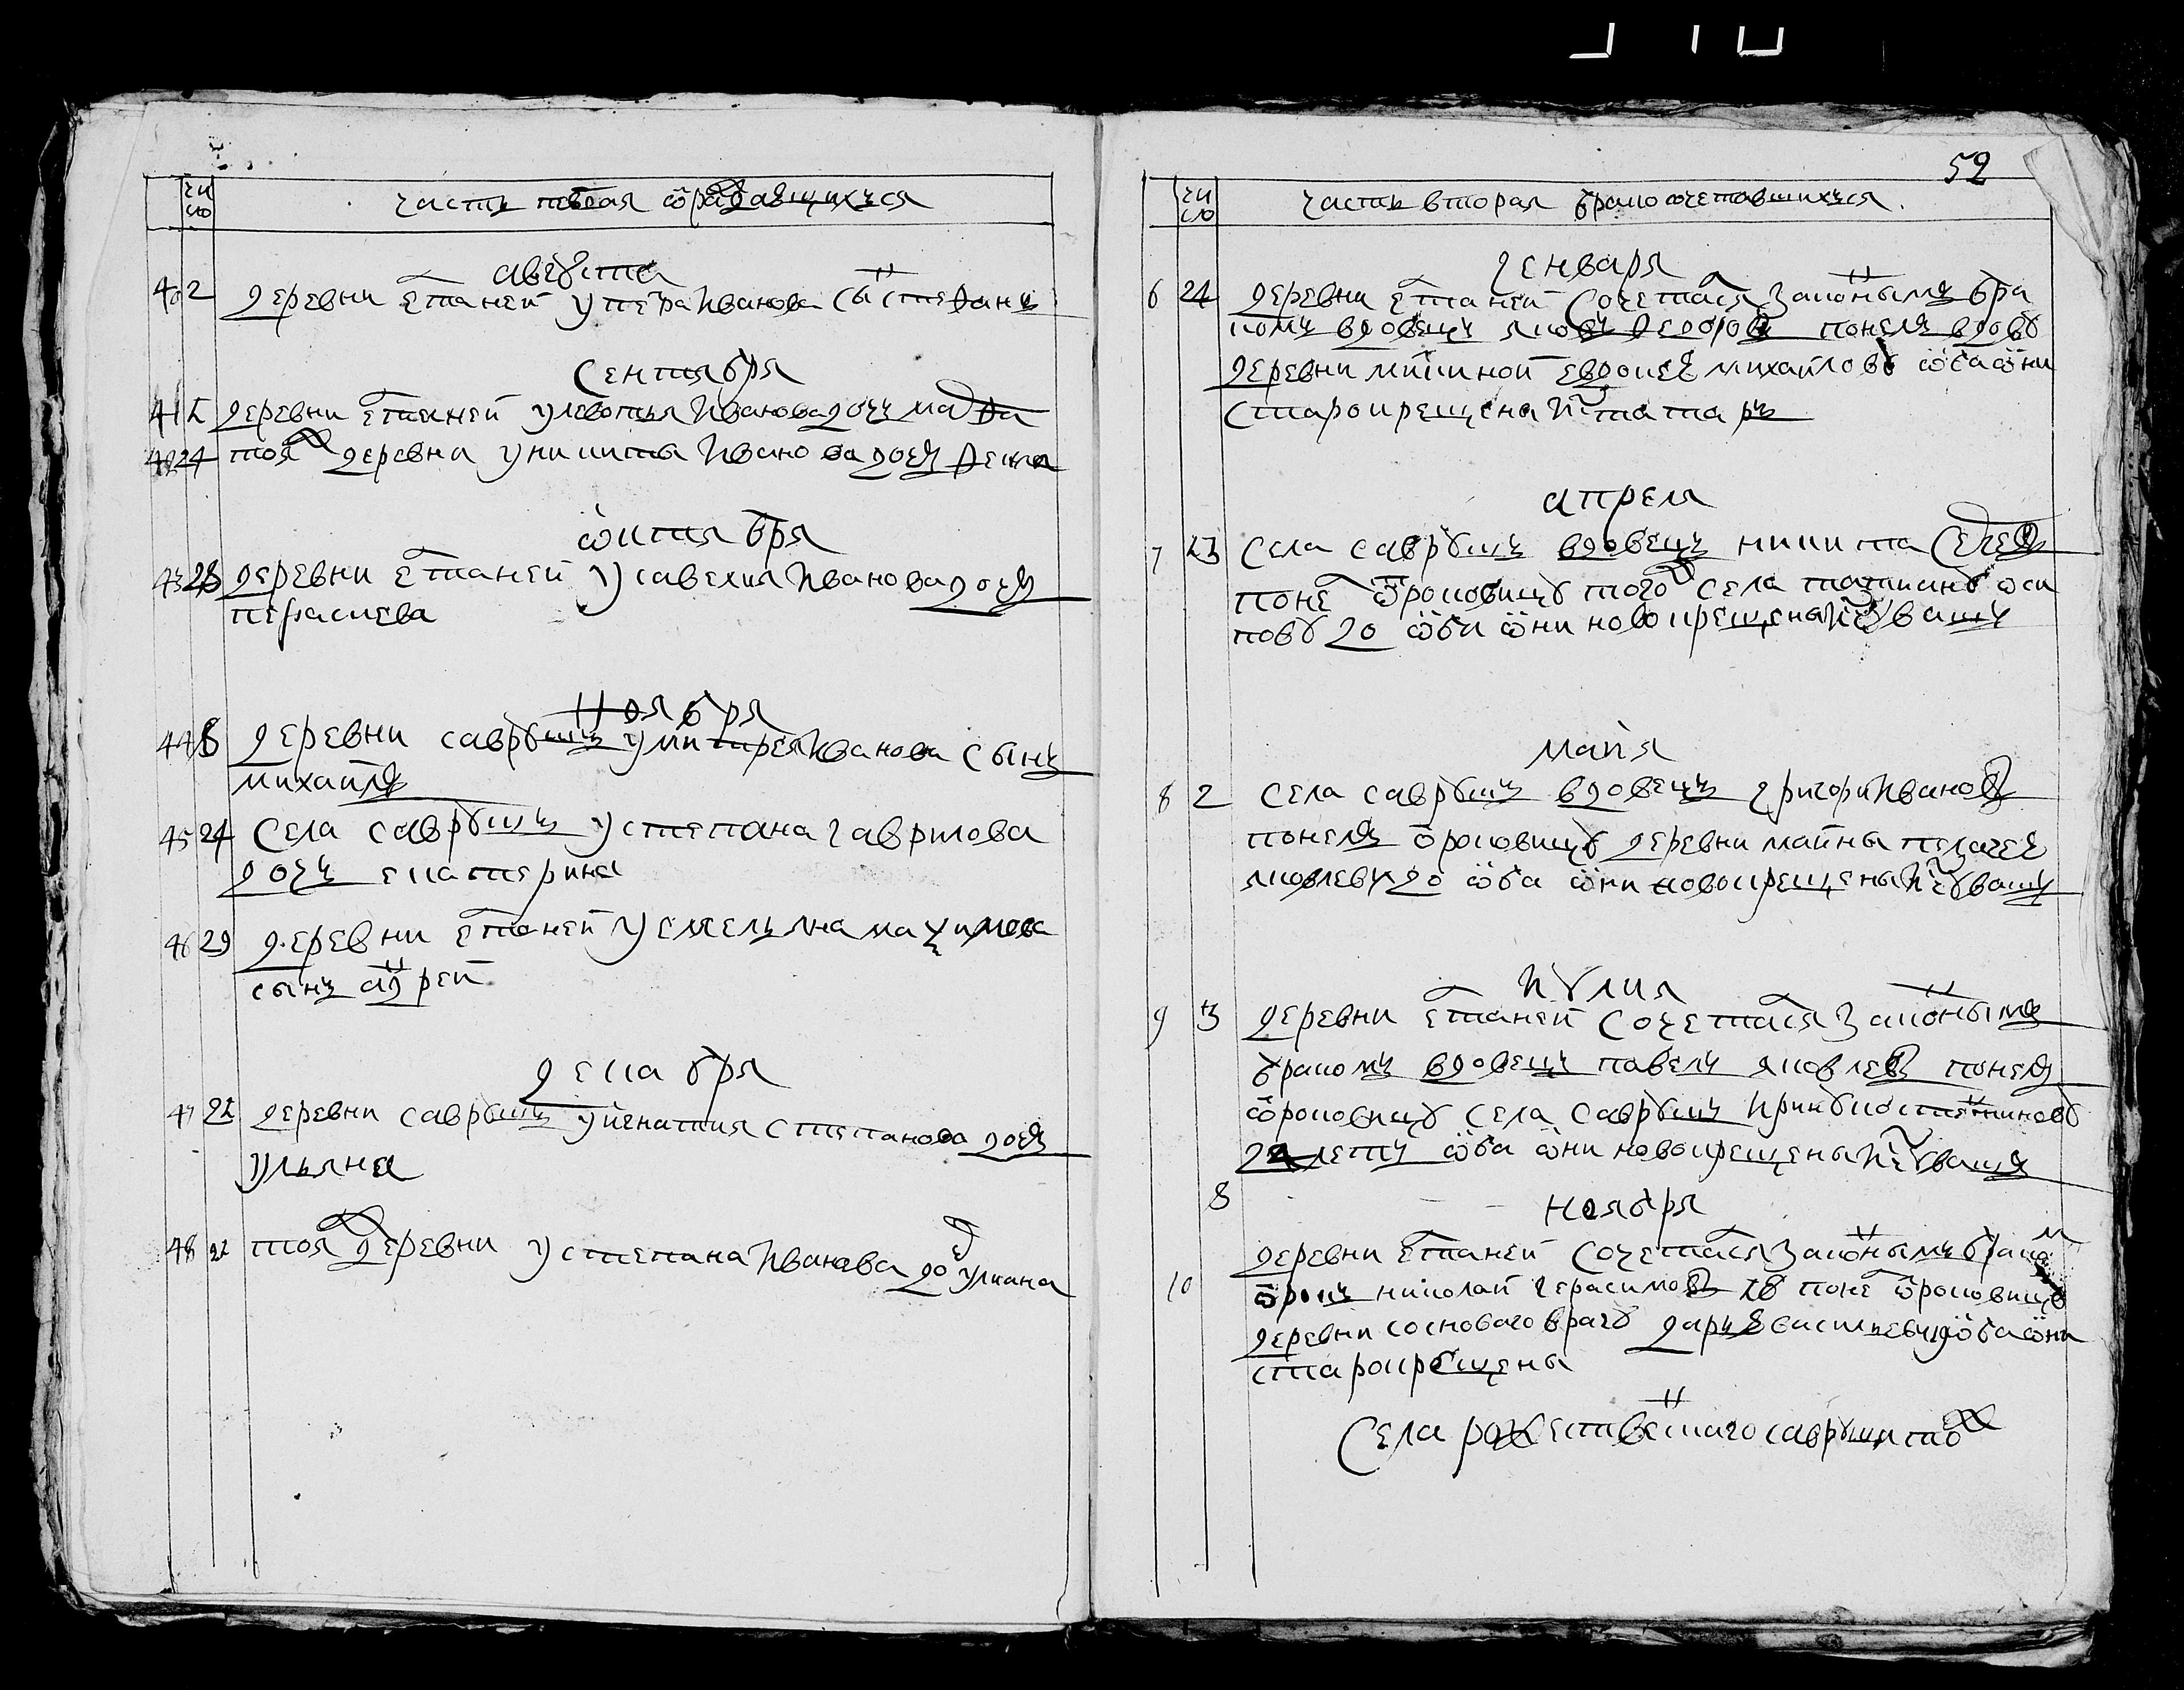 чи
сло
часть первая о раждающихся
августа
40 2 деревни етаней у петра Иванова сынъ стефанъ
сентября
41 деревни етаней у леонтья Иванова дочь марфа
24 тояж деревни у никиты Иванова дочь фекла
октября
43 28 деревни етаней у савелия Иванова дочь
параскева
Ноября
44 8 деревни саврушъ у митирея Иванова сынъ
михайлъ
45 24 Села саврушъ у степана гаврилова
дочь екатерина
46 29 деревни етаней у емельяна маѯимова
сынъ андрей
декабря
47 21 деревни саврушъ у игнатия степанова дочь
ульяна
48 22 тояж деревни у степана Иванова дочь улиана
52
чи
сло
часть вторая бракосочетавшихъся
генваря
6 24 деревни етаней Сочетался законнымъ бра
комъ вдовецъ яковъ федоровъ понелъ вдову
деревни мишиной евдокею михайлову оба они
старокрещена ис татаръ
апреля
7 13 села саврушъ вдовецъ никита сергеевъ
понелъ отроковицу тогож села татиану оси
пову 20 оба они новокрещены ис чувашъ
майя
8 2 села саврушъ вдовецъ григори Ивановъ
понелъ отроковицу деревни майны пелагею
яковлеву 20 оба они новокрещены ис чувашъ
Иулия
9 3 деревни етаней сочетался законнымъ
бракомъ вдовецъ павелъ яковлевъ понелъ
отроковицу села саврушъ Ирину костентинову
летъ оба они новокрещены ис чувашъ
8 ноября
деревни етаней сочетался законнымъ браком
10 отрокъ николай герасимовъ 18 понелъ отроковицу
деревни сосноваго врагу дарью васильеву оба они
старокрещены
Села рожественского саврушъ тож